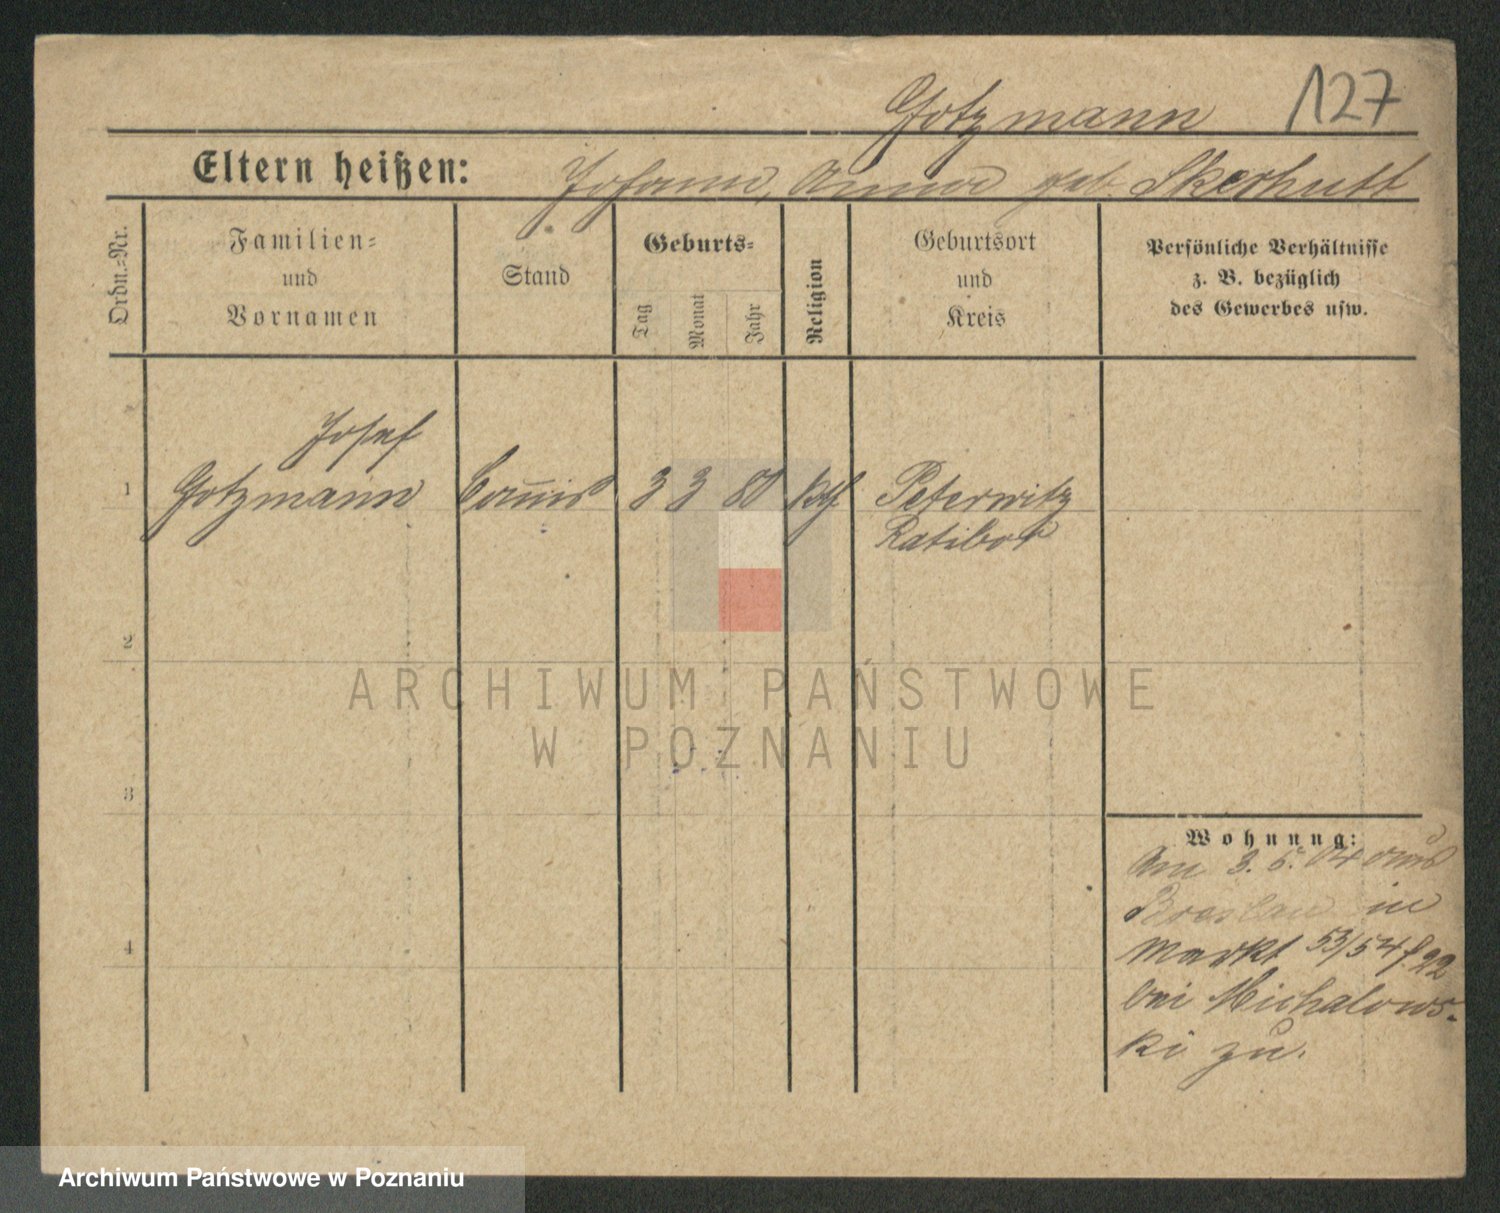 Gotzmann 127
Eltern heißen: Johann, Anna geb. Skerhutt
Ordn.-Nr.
Familien-
und
Vornamen
Stand
Geburts-
Tag
Monat
Jahr
Religion
Geburtsort
und
Kreis
Persönliche Verhältnisse
z. B. bezüglich
des Gewerbes usw.
Josef
1 Gotzmann Comis 3 3 80 kth Peterwitz
Ratibor
2
3
4
Wohnung:
Am 3. 5. 04 aus
Breslau in
Markt 53/54 f. 22
bei Michalows-
ki zu.
ARCHIWUM PAŃSTWOWE
W POZNANIU
Archiwum Państwowe w Poznaniu